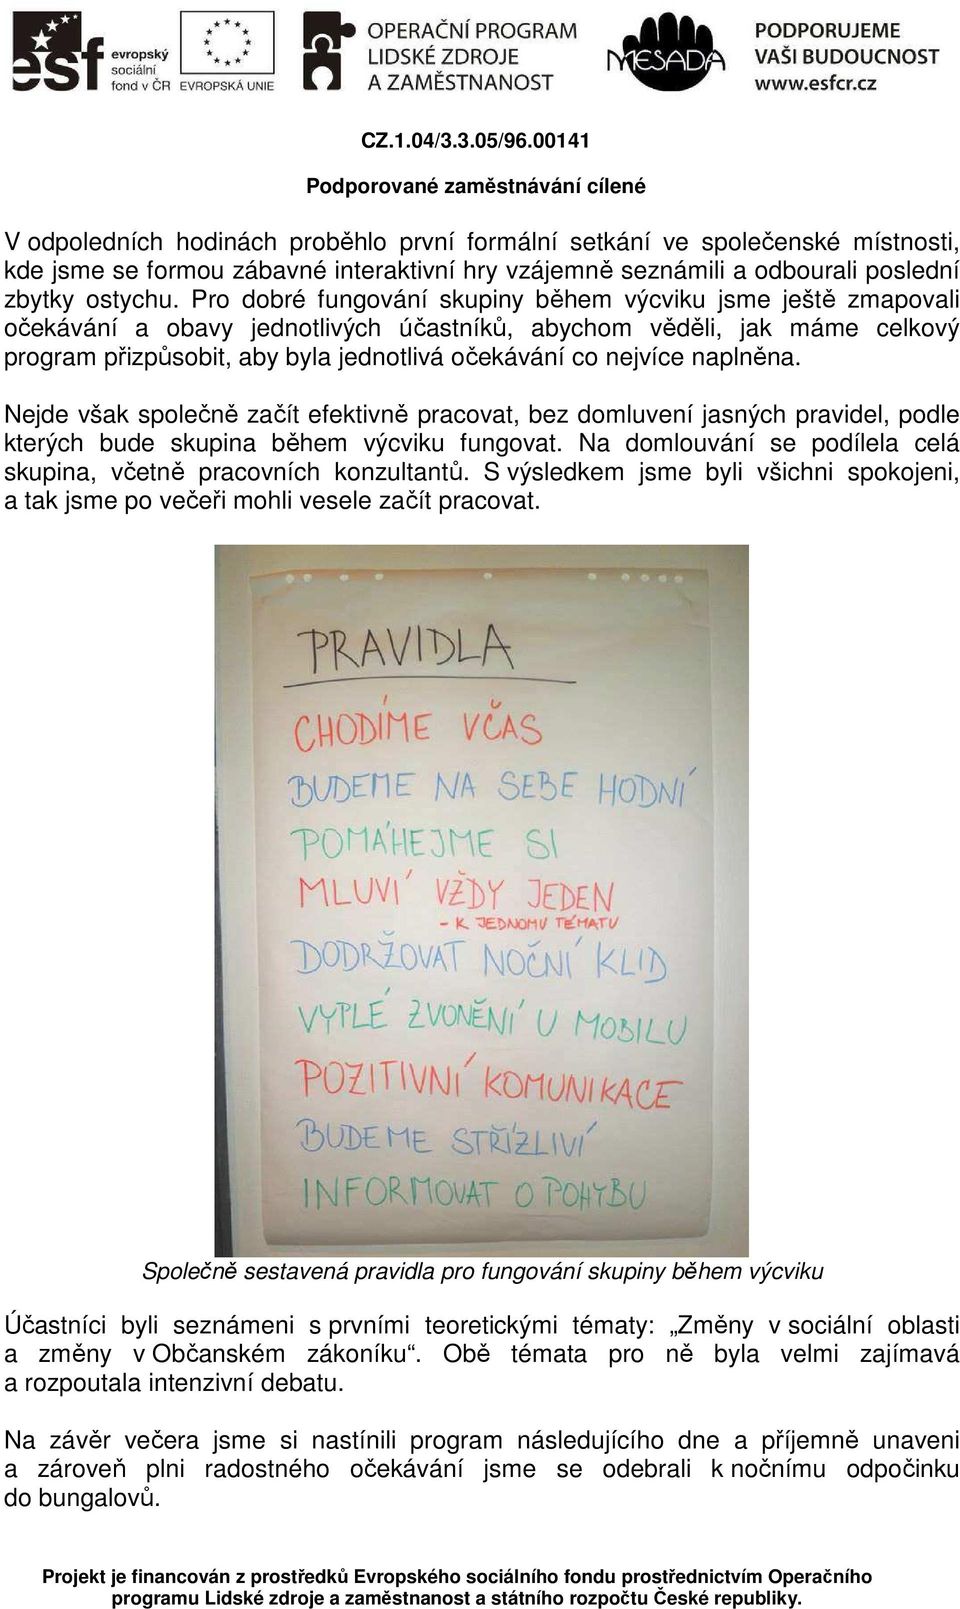 esf
evropský
sociální
fond v ČR
EVROPSKÁ UNIE
OPERAČNÍ PROGRAM
LIDSKÉ ZDROJE
A ZAMĚSTNANOST
MESADA
PODPORUJEME
VAŠI BUDOUCNOST
www.esfcr.cz
CZ.1.04/3.3.05/96.00141
Podporované zaměstnávání cílené
V odpoledních hodinách proběhlo první formální setkání ve společenské místnosti,
kde jsme se formou zábavné interaktivní hry vzájemně seznámili a odbourali poslední
zbytky ostychu. Pro dobré fungování skupiny během výcviku jsme ještě zmapovali
očekávání a obavy jednotlivých účastníků, abychom věděli, jak máme celkový
program přizpůsobit, aby byla jednotlivá očekávání co nejvíce naplněna.
Nejde však společně začít efektivně pracovat, bez domluvení jasných pravidel, podle
kterých bude skupina během výcviku fungovat. Na domlouvání se podílela celá
skupina, včetně pracovních konzultantů. S výsledkem jsme byli všichni spokojeni,
a tak jsme po večeři mohli vesele začít pracovat.
PRAVIDLA
CHODÍME VČAS
BUDEME NA SEBE HODNÍ
POMÁHEJME SI
MLUVÍ VŽDY JEDEN
- K JEDNOMU TÉMATU
DODRŽOVAT NOČNÍ KLID
VYPLÉ ZVONĚNÍ U MOBILU
POZITIVNÍ KOMUNIKACE
BUDEME STŘÍZLIVÍ
INFORMOVAT O POHYBU
Společně sestavená pravidla pro fungování skupiny během výcviku
Účastníci byli seznámeni s prvními teoretickými tématy: „Změny v sociální oblasti
a změny v Občanském zákoníku“. Obě témata pro ně byla velmi zajímavá
a rozpoutala intenzivní debatu.
Na závěr večera jsme si nastínili program následujícího dne a příjemně unaveni
a zároveň plni radostného očekávání jsme se odebrali k nočnímu odpočinku
do bungalovů.
Projekt je financován z prostředků Evropského sociálního fondu prostřednictvím Operačního
programu Lidské zdroje a zaměstnanost a státního rozpočtu České republiky.